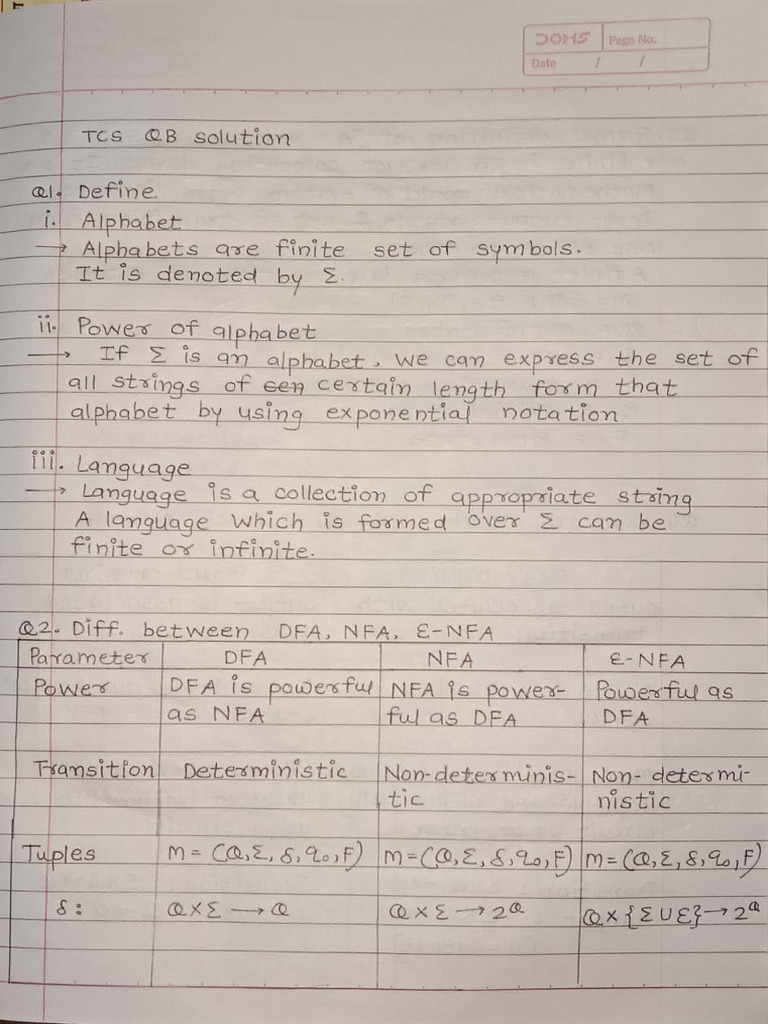 DOMS Page No.
Date / /
TCS QB solution
Q1. Define
i. Alphabet
→ Alphabets are finite set of symbols.
It is denoted by Σ.
ii. Power of alphabet
→ If Σ is an alphabet, we can express the set of
all strings of cen certain length form that
alphabet by using exponential notation
iii. Language
→ Language is a collection of appropriate string
A language which is formed over Σ can be
finite or infinite.
Q2. Diff. between DFA, NFA, ε-NFA
Parameter DFA NFA ε-NFA
Power DFA is powerful NFA is power- Powerful as
as NFA ful as DFA DFA
Transition Deterministic Non-determinis- Non-determi-
tic nistic
Tuples M = (Q, Σ, δ, q₀, F) M = (Q, Σ, δ, q₀, F) M = (Q, Σ, δ, q₀, F)
δ: Q X Σ → Q Q X Σ → 2^Q Q X {Σ U ε} → 2^Q